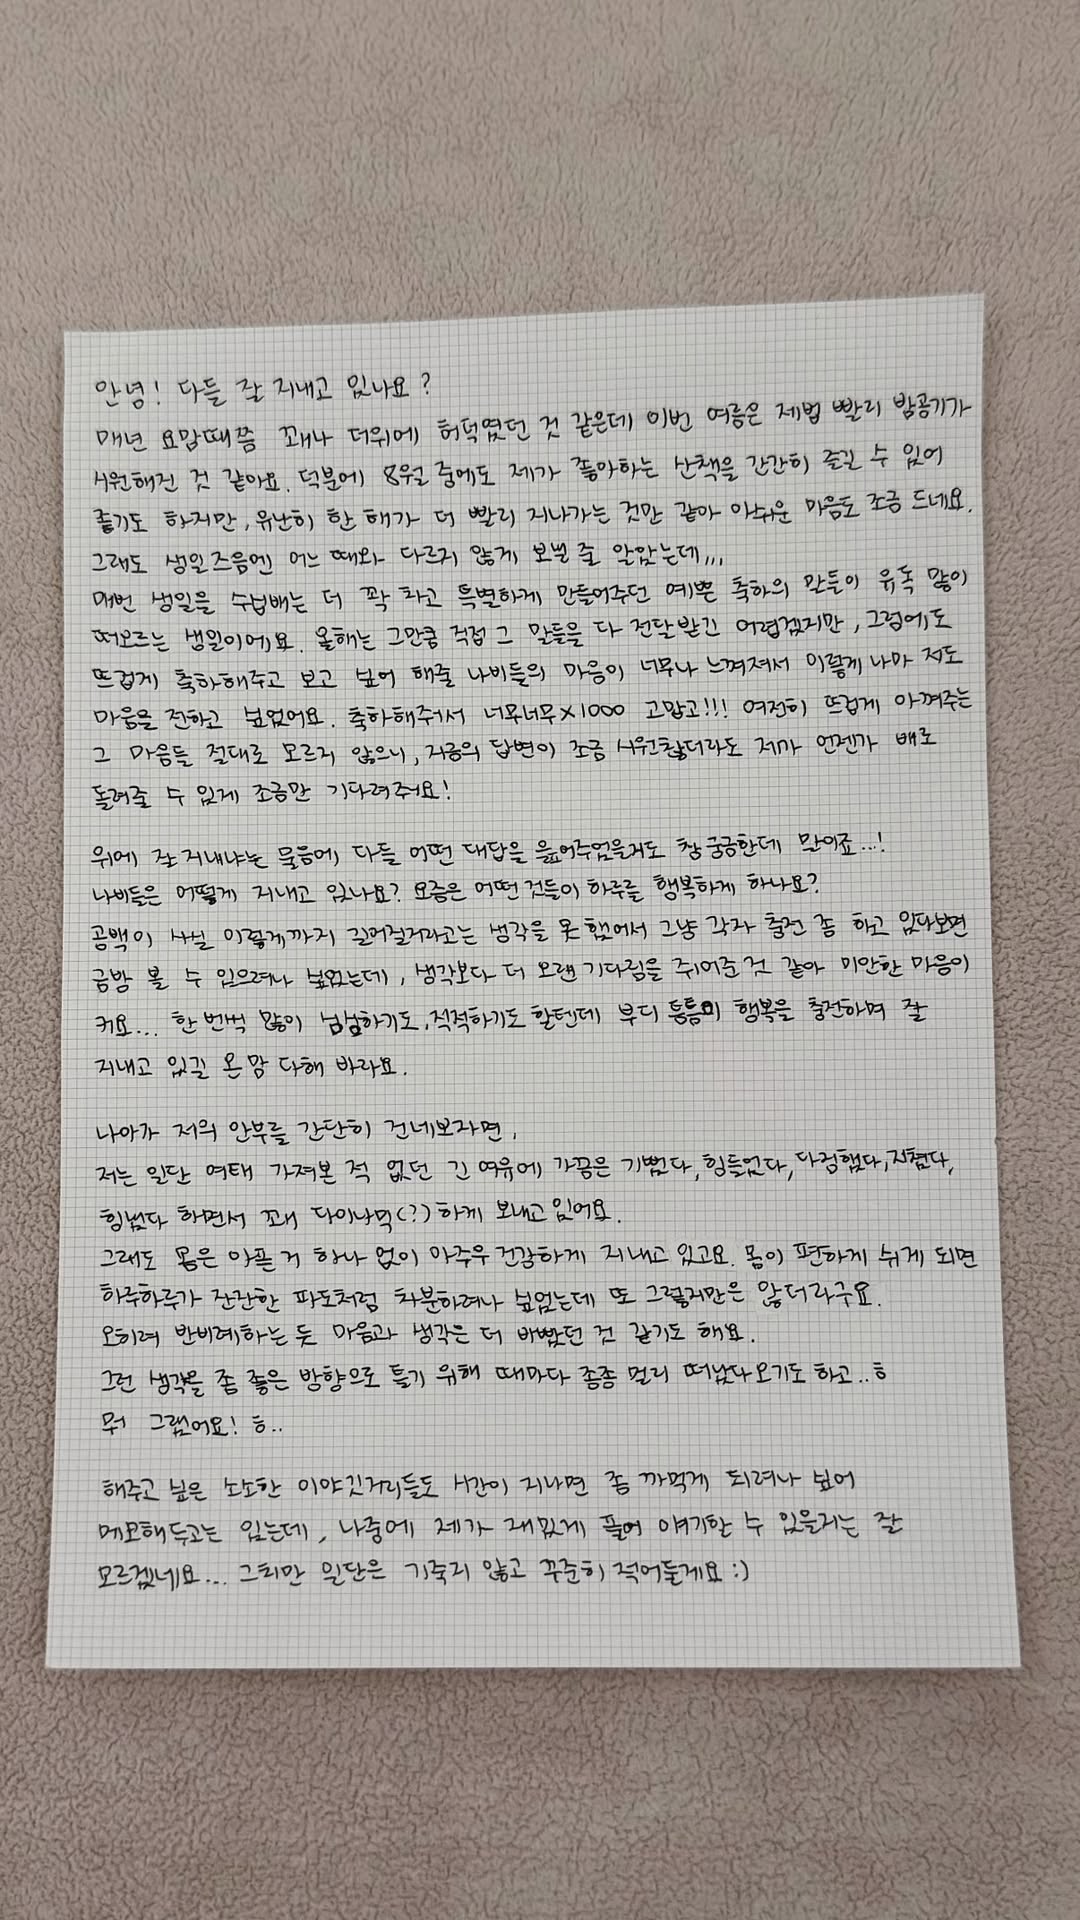 안녕! 다들 잘 지내고 있나요?
매년 요맘때쯤 꽤나 더위에 허덕였던 것 같은데 이번 여름은 제법 빨리 밤공기가
시원해진 것 같아요. 덕분에 8월 중에도 제가 좋아하는 산책을 간간히 즐길 수 있어
좋기도 하지만, 유난히 한 해가 더 빨리 지나가는 것만 같아 아쉬운 마음도 조금 드네요.
그래도 생일즈음엔 여느 때와 다르지 않게 보낼 줄 알았는데,,,
매번 생일을 수십배는 더 꽉 차고 특별하게 만들어주던 예쁜 축하의 말들이 유독 많이
떠오르는 생일이에요. 올해는 그만큼 직접 그 말들을 다 전달받긴 어렵겠지만, 그럼에도
뜨겁게 축하해주고 보고 싶어 해줄 나비들의 마음이 너무나 느껴져서 이렇게나마 저도
마음을 전하고 싶었어요. 축하해주어서 너무너무×1000 고맙고!!! 여전히 뜨겁게 아껴주는
그 마음들 절대로 모르지 않으니, 지금의 답변이 조금 시원찮더라도 제가 언젠가 배로
돌려줄 수 있게 조금만 기다려주어요!
위에 잘 지내냐는 물음에 다들 어떤 대답을 읊어주었을지도 참 궁금한데 말이죠...!
나비들은 어떻게 지내고 있나요? 요즘은 어떤 것들이 하루를 행복하게 하나요?
공백이 사실 이렇게까지 길어질거라고는 생각을 못 했어서 그냥 각자 충전 좀 하고 있다보면
금방 볼 수 있으려나 싶었는데, 생각보다 더 오랜 기다림을 쥐어준 것 같아 미안한 마음이
커요... 한 번씩 많이 심심하기도, 적적하기도 할텐데 부디 틈틈이 행복을 충전하며 잘
지내고 있길 온 맘 다해 바라요.
나아가 저의 안부를 간단히 건네보자면,
저는 일단 여태 가져본 적 없던 긴 여유에 가끔은 기뻤다, 힘들었다, 다정했다, 지쳤다,
힘냈다 하면서 꽤 다이나믹(?)하게 보내고 있어요.
그래도 몸은 아픈 거 하나 없이 아주우 건강하게 지내고 있고요. 몸이 편하게 쉬게 되면
하루하루가 잔잔한 파도처럼 차분하려나 싶었는데 또 그렇지만은 않더라구요.
오히려 반비례하는 듯 마음과 생각은 더 바빴던 것 같기도 해요.
그런 생각을 좀 좋은 방향으로 틀기 위해 때마다 종종 멀리 떠났다 오기도 하고..ㅎ
뭐 그랬어요! ㅎ..
해주고 싶은 소소한 이야깃거리들도 시간이 지나면 좀 까먹게 되려나 싶어
메모해두고는 있는데, 나중에 제가 재밌게 풀어 얘기할 수 있을지는 잘
모르겠네요... 그치만 일단은 기죽지 않고 꾸준히 적어둘게요 :)